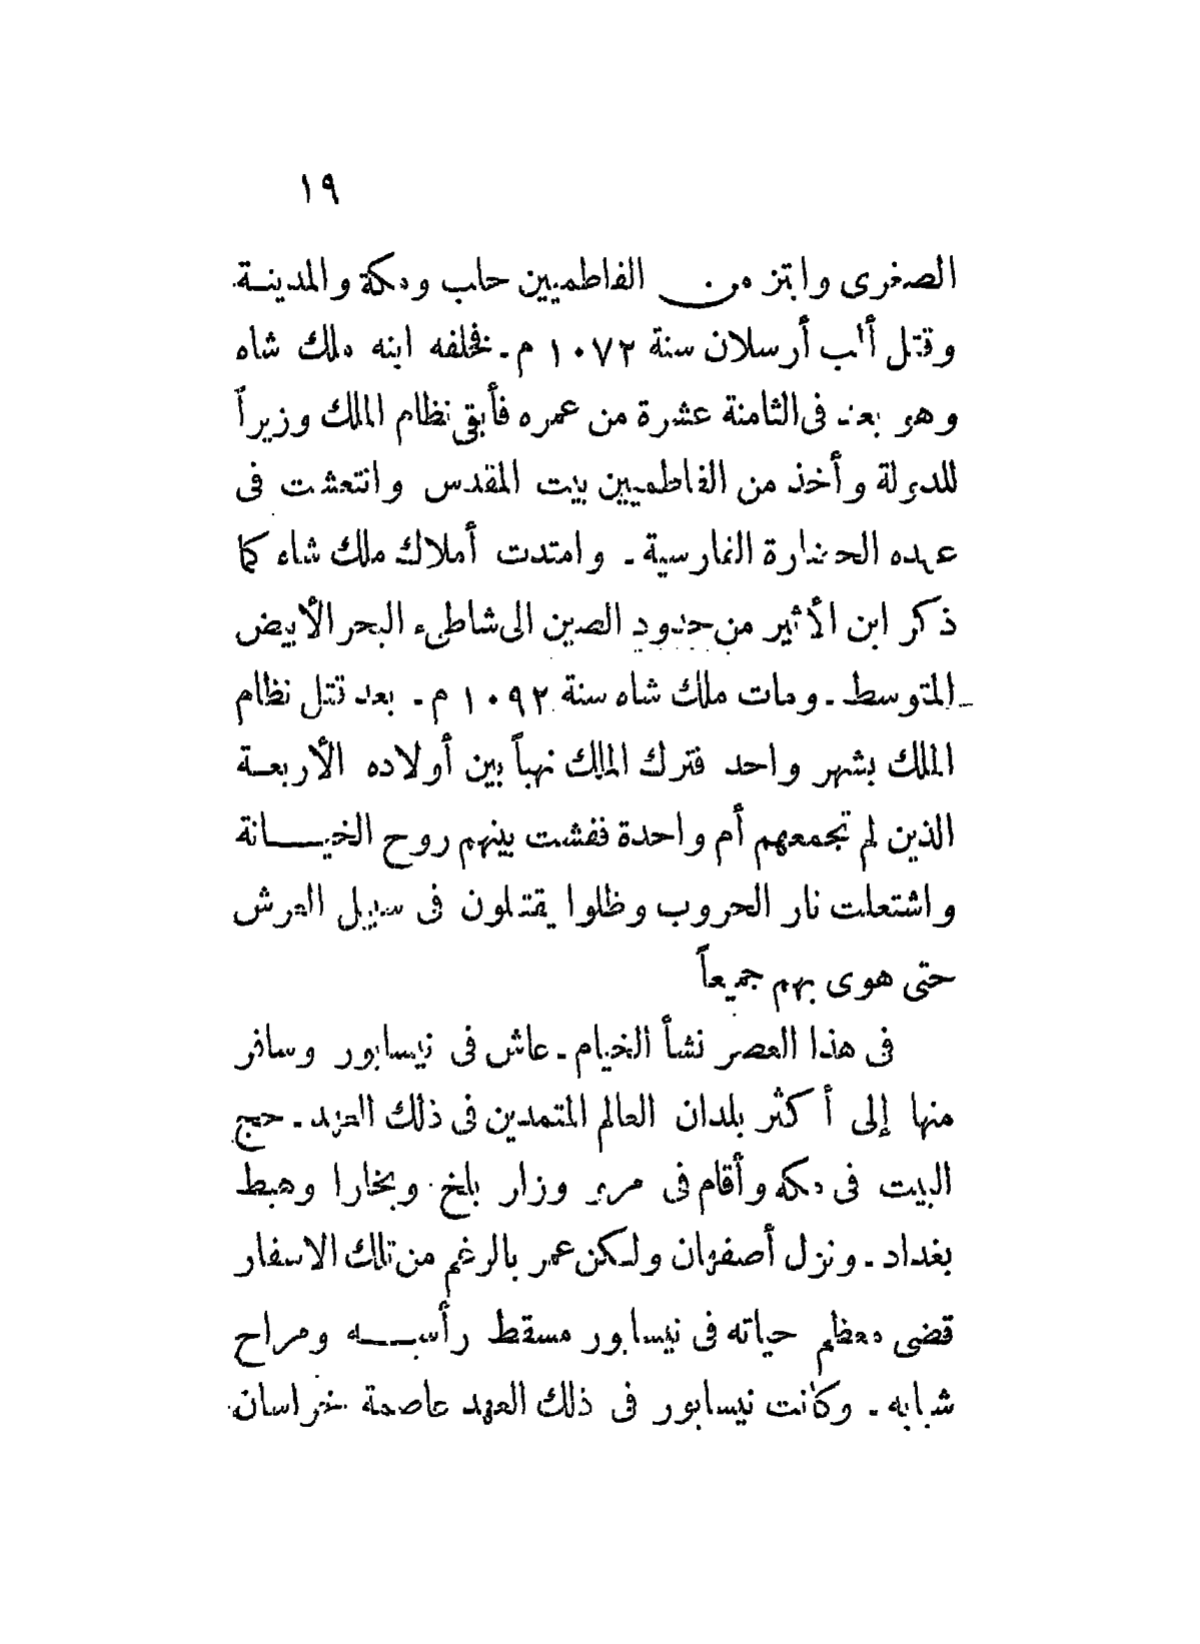 ١٩
الصغرى وابتز من الفاطميين حلب ومكة والمدينة
وقتل ألب أرسلان سنة ١٠٧٢ م ـ فخلفه ابنه ملك شاه
وهو بعد فى الثامنة عشرة من عمره فأبقى نظام الملك وزيراً
للدولة وأخذ من الفاطميين بيت المقدس وانتعشت فى
عهده الحضارة الفارسية ـ وامتدت أملاك ملك شاه كما
ذكر ابن الأثير من حدود الصين الى شاطىء البحر الأبيض
المتوسط ـ ومات ملك شاه سنة ١٠٩٢ م ـ بعد قتل نظام
الملك بشهر واحد فترك الملك نهباً بين أولاده الأربعة
الذين لم تجمعهم أم واحدة ففشت بينهم روح الخيـــانة
واشتعلت نار الحروب وظلوا يقتتلون فى سبيل العرش
حتى هوى بهم جميعاً
فى هذا العصر نشأ الخيام ـ عاش فى نيسابور وسافر
منها إلى أكثر بلدان العالم المتمدين فى ذلك العهد ـ حج
البيت فى مكة وأقام فى مرو وزار بلخ وبخارا وهبط
بغداد ـ ونزل أصفهان ولكن عمر بالرغم من تلك الاسفار
قضى معظم حياته فى نيسابور مسقط رأســـه ومراح
شبابه ـ وكانت نيسابور فى ذلك العهد عاصمة خراسان